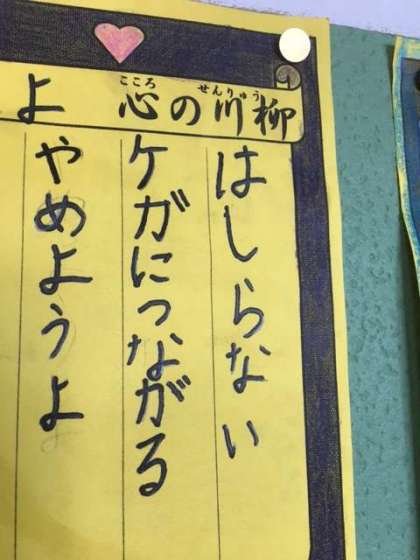 心の川柳
こころ
せんりゅう
よ
はしらない
ケガにつながる
やめようよ